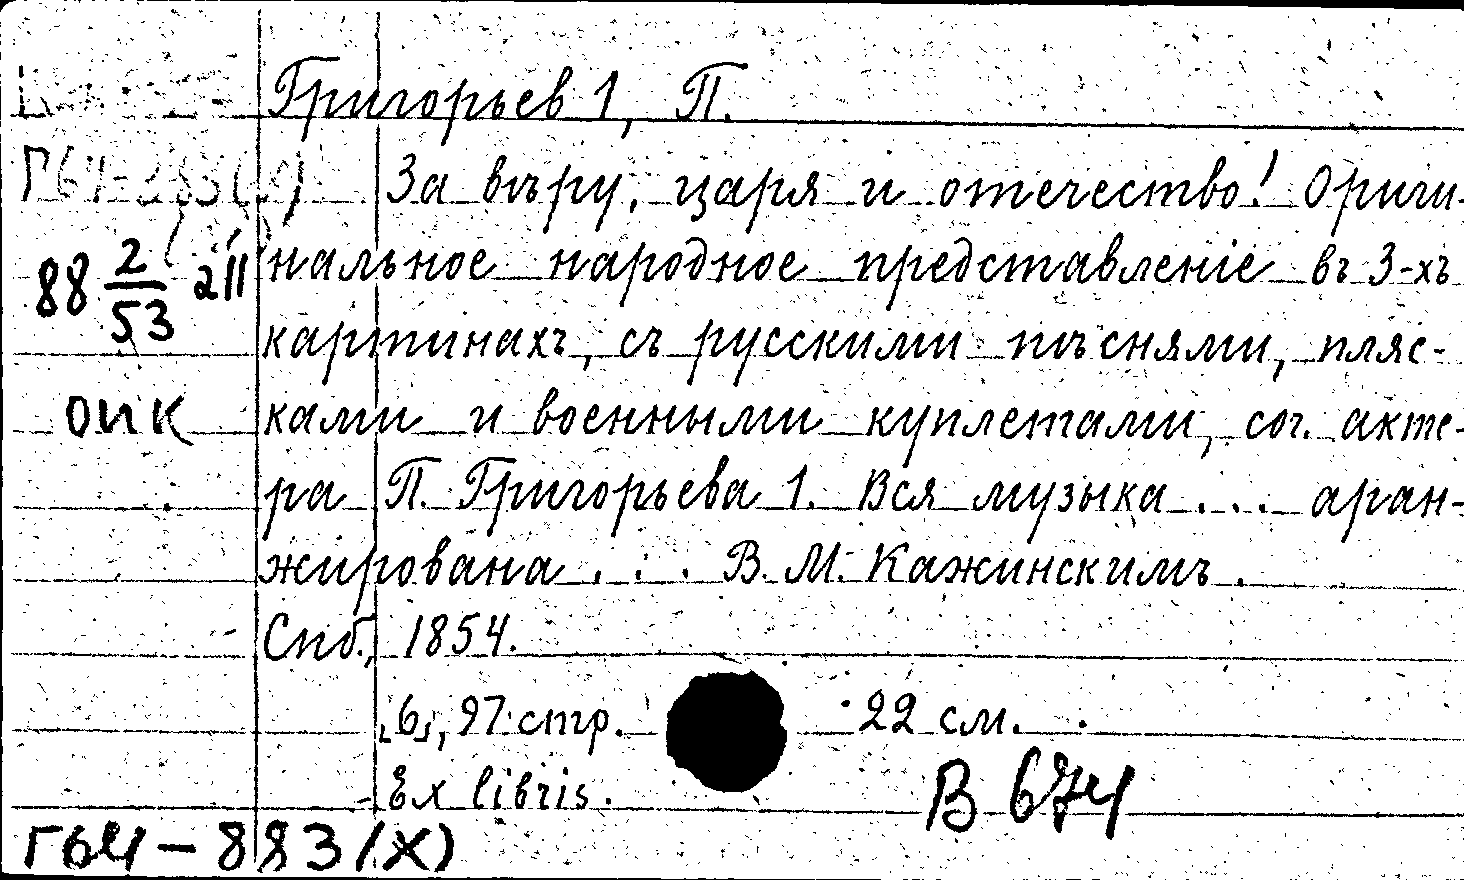 Григорьев 1, П.
За вѣру, царя и отечество! Ориги-
нальное народное представленіе въ 3-хъ
картинахъ, съ русскими пѣснями, пляс-
ками и военными куплетами, соч. акте-
ра П. Григорьева 1. Вся музыка ... аран-
жирована ... В. М. Кажинскимъ.
Спб., 1854.
[6], 97 стр. 22 см.
Ex libris.
88 2/53
ОИК
В 674
Г64-883(X)